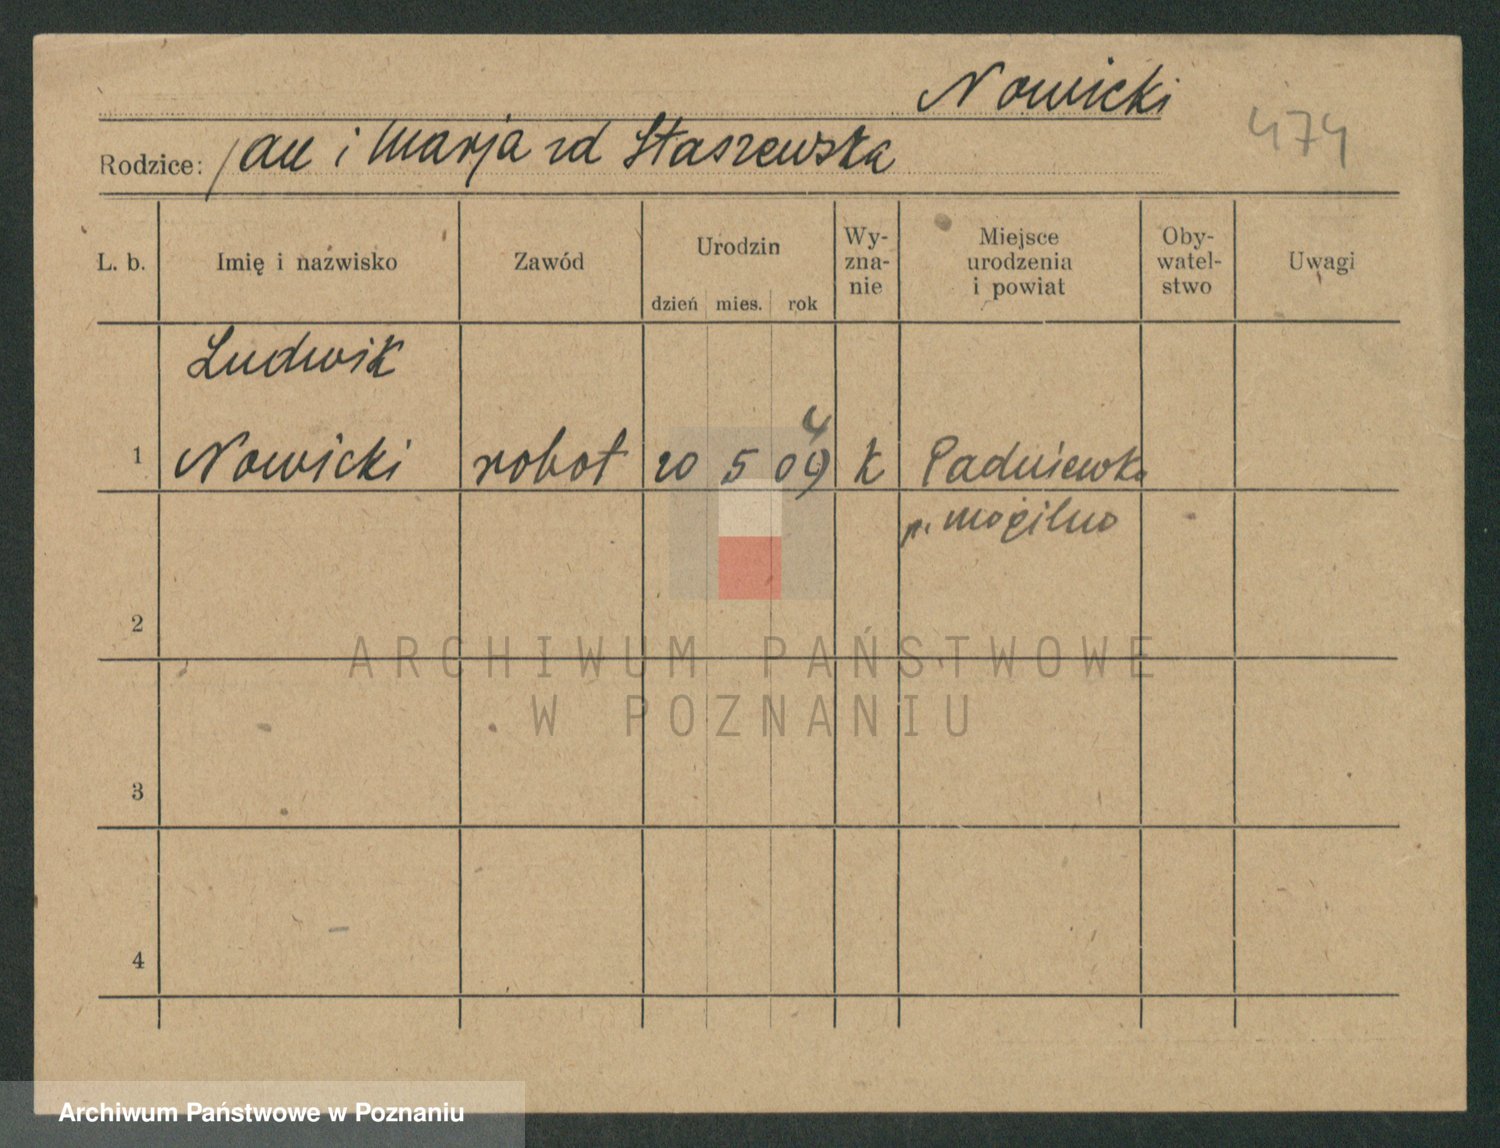 Nowicki
474
Rodzice: Jan i Marja zd Staszewska
L. b. Imię i nazwisko Zawód Urodzin dzień mies. rok Wy-zna-nie Miejsce urodzenia i powiat Oby-watel-stwo Uwagi
Ludwik
4
1 Nowicki robot 20 5 09 k Padniewko
p. Mogilno
2
ARCHIWUM PAŃSTWOWE
W POZNANIU
3
4
Archiwum Państwowe w Poznaniu